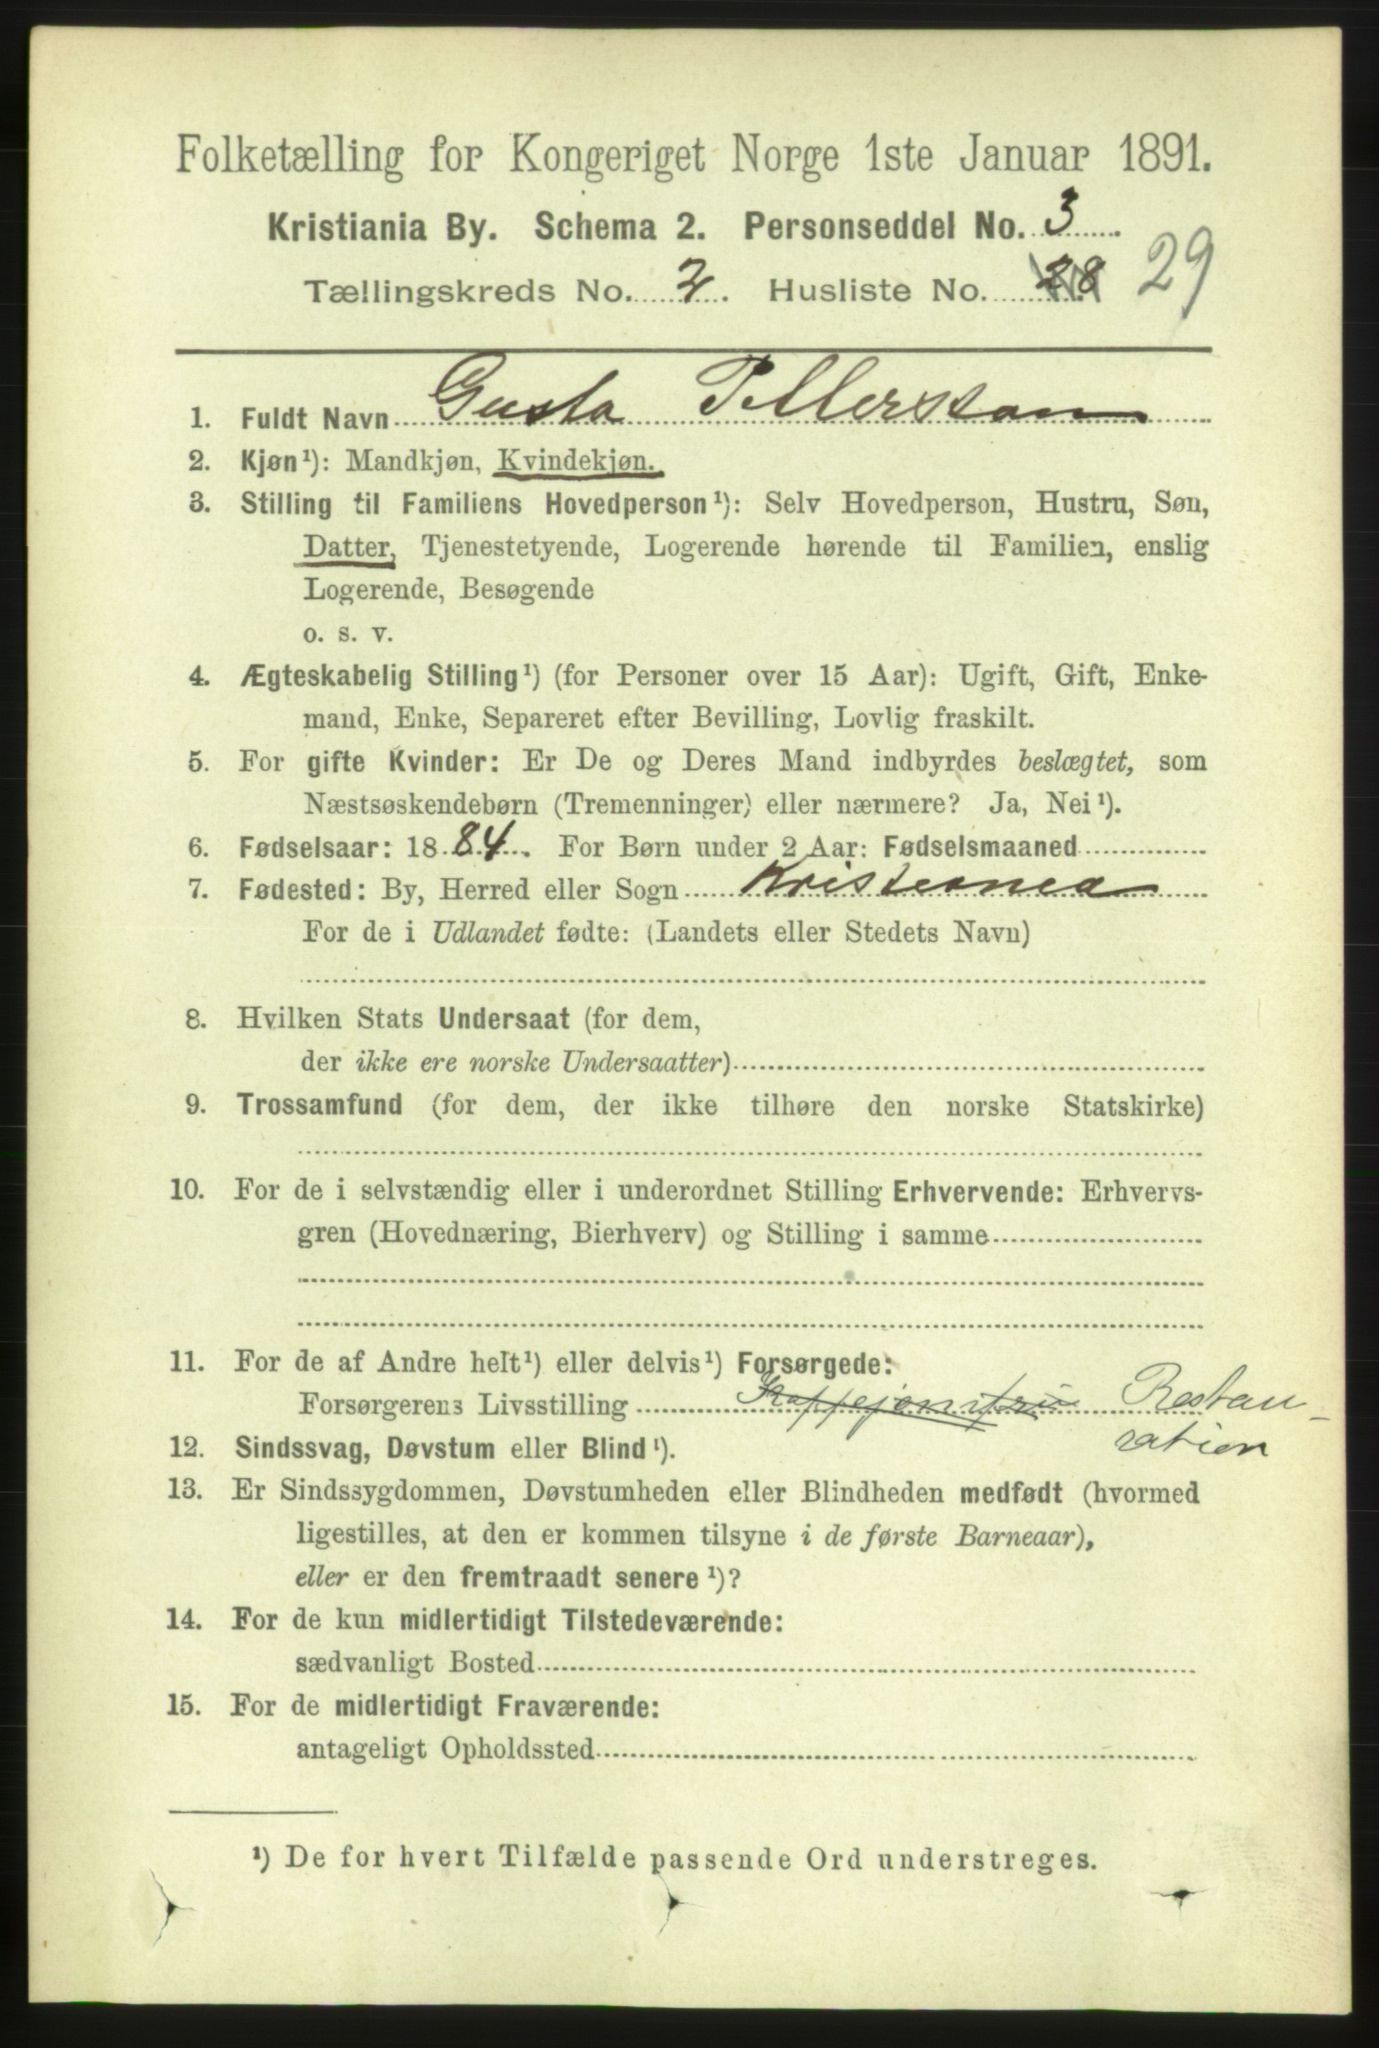 Folketælling for Kongeriget Norge 1ste Januar 1891.
Kristiania By. Schema 2. Personseddel No. 3
Tællingskreds No. 2. Husliste No. 28 29
1. Fuldt Navn Gusta Pettersson
2. Kjøn¹): Mandkjøn, Kvindekjøn.
3. Stilling til Familiens Hovedperson¹): Selv Hovedperson, Hustru, Søn,
Datter, Tjenestetyende, Logerende hørende til Familien, enslig
Logerende, Besøgende
o. s. v.
4. Ægteskabelig Stilling¹) (for Personer over 15 Aar): Ugift, Gift, Enke-
mand, Enke, Separeret efter Bevilling, Lovlig fraskilt.
5. For gifte Kvinder: Er De og Deres Mand indbyrdes beslægtet, som
Næstsøskendebørn (Tremenninger) eller nærmere? Ja, Nei¹).
6. Fødselsaar: 1884. For Børn under 2 Aar: Fødselsmaaned
7. Fødested: By, Herred eller Sogn Kristiania
For de i Udlandet fødte: (Landets eller Stedets Navn)
8. Hvilken Stats Undersaat (for dem,
der ikke ere norske Undersaatter)
9. Trossamfund (for dem, der ikke tilhøre den norske Statskirke)
10. For de i selvstændig eller i underordnet Stilling Erhvervende: Erhvervs-
gren (Hovednæring, Bierhverv) og Stilling i samme
11. For de af Andre helt¹) eller delvis¹) Forsørgede:
Forsørgerens Livsstilling Restau-
ration
12. Sindssvag, Døvstum eller Blind¹).
13. Er Sindssygdommen, Døvstumheden eller Blindheden medfødt (hvormed
ligestilles, at den er kommen tilsyne i de første Barneaar),
eller er den fremtraadt senere¹)?
14. For de kun midlertidigt Tilstedeværende:
sædvanligt Bosted
15. For de midlertidigt Fraværende:
antageligt Opholdssted
¹) De for hvert Tilfælde passende Ord understreges.